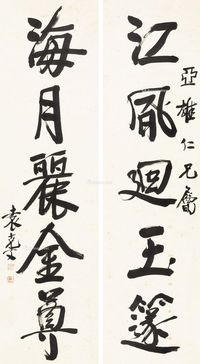 江風迴玉篴
亞雄仁兄屬
海月麗金尊
袁克文